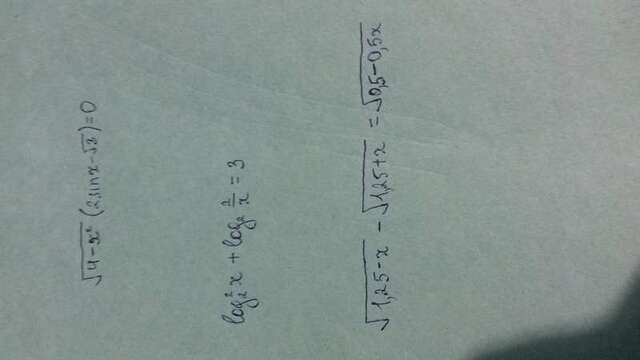 √(4-x²) (2sinx-√3)=0
log₂²x + log₂ 2/x = 3
√(1,25-x) - √(1,25+x) = √(0,5-0,5x)